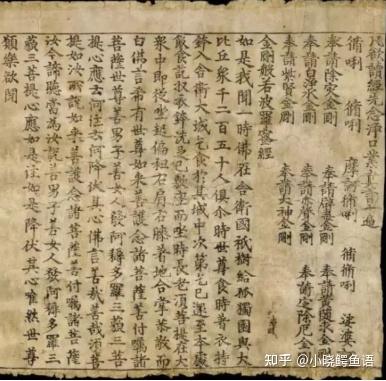 凡欲讀經先念淨口業真言一遍
脩唎 脩唎 摩訶脩唎 脩脩唎 娑婆
奉請除灾金剛 奉請辟毒金剛 奉請黃隨求金剛
奉請白淨水金剛 奉請赤聲金剛 奉請定除厄金剛
奉請紫賢金剛 奉請大神金剛
金剛般若波羅蜜經
如是我聞一時佛在舍衛國祇樹給孤獨園與大
比丘衆千二百五十人俱尒時世尊食時著衣持
鉢入舍衛大城乞食於其城中次第乞已還至本處
飯食訖收衣鉢洗足已敷座而坐時長老須菩提在大
衆中即從座起偏袒右肩右膝著地合掌恭敬而
白佛言希有世尊如來善護念諸菩薩善付囑諸
菩薩世尊善男子善女人發阿耨多羅三藐三菩
提心應云何住云何降伏其心佛言善哉善哉須菩
提如汝所說如來善護念諸菩薩善付囑諸菩薩
汝今諦聽當為汝說善男子善女人發阿耨多羅三
藐三菩提心應如是住如是降伏其心唯然世尊
願樂欲聞
知乎 @小晓鳄鱼语